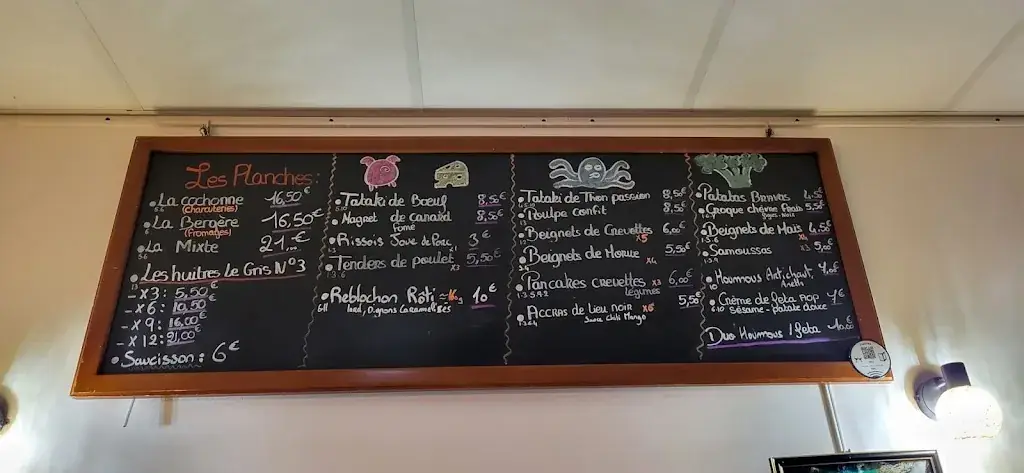 Les Planches:
La cochonne 16,50€
(Charcuteries)
La Bergère 16,50€
(fromages)
La Mixte 21,-€
Les huîtres Le Gris N°3
- x3 : 5,50€
- x6 : 10,50€
- x9 : 16,00€
- x12 : 21,00€
Saucisson : 6€
Tataki de Boeuf 8,50€
Magret de canard 8,50€
fumé
Rissois Save de Porc 3€
Tenders de poulet x3 5,50€
Reblochon Rôti 10€
lard, Oignons Caramelisés
Tataki de Thon passion 8,50€
Poulpe confit 8,50€
Beignets de Crevettes x5 6,00€
Beignets de Morue x4 5,50€
Pancakes crevettes x3 6,00€
légumes
Accras de Lieu noir x6 5,50€
Sauce chili Mango
Patatas Bravas 4,50€
Croque chèvre frais 5,50€
Beignets de Maïs 4,50€
Samoussas 5,00€
Houmous Artichaut, 7,00€
Aneth
Crème de feta pop 7€
Sésame - patate douce
Duo Houmous / feta 10,00€